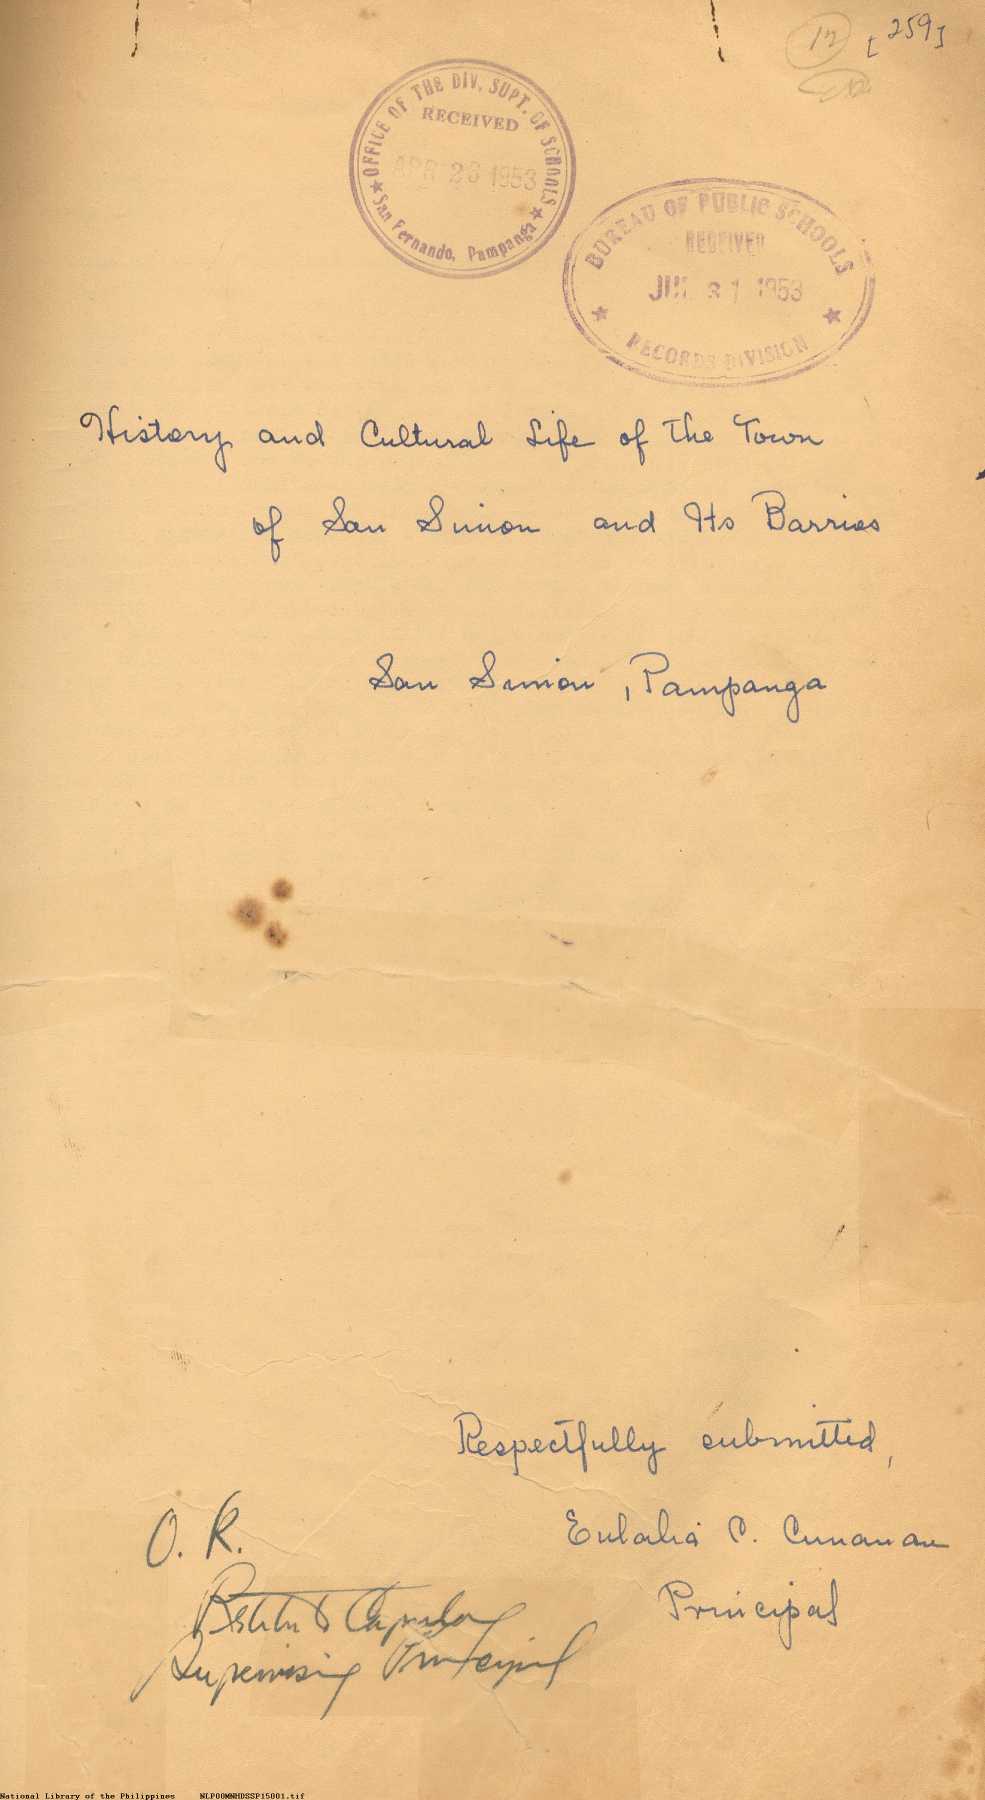 [259]
12
OFFICE OF THE DIV. SUPT. OF SCHOOLS
RECEIVED
APR 28 1953
San Fernando, Pampanga
BUREAU OF PUBLIC SCHOOLS
RECEIVED
31 1953
RECORDS DIVISION
History and Cultural Life of The Town
of San Simon and Its Barrios
San Simon, Pampanga
Respectfully submitted,
Eulalia C. Cunanan
Principal
O. K.
Supervising Principal
National Library of the Philippines NLP00MNHDSSP15001.tif